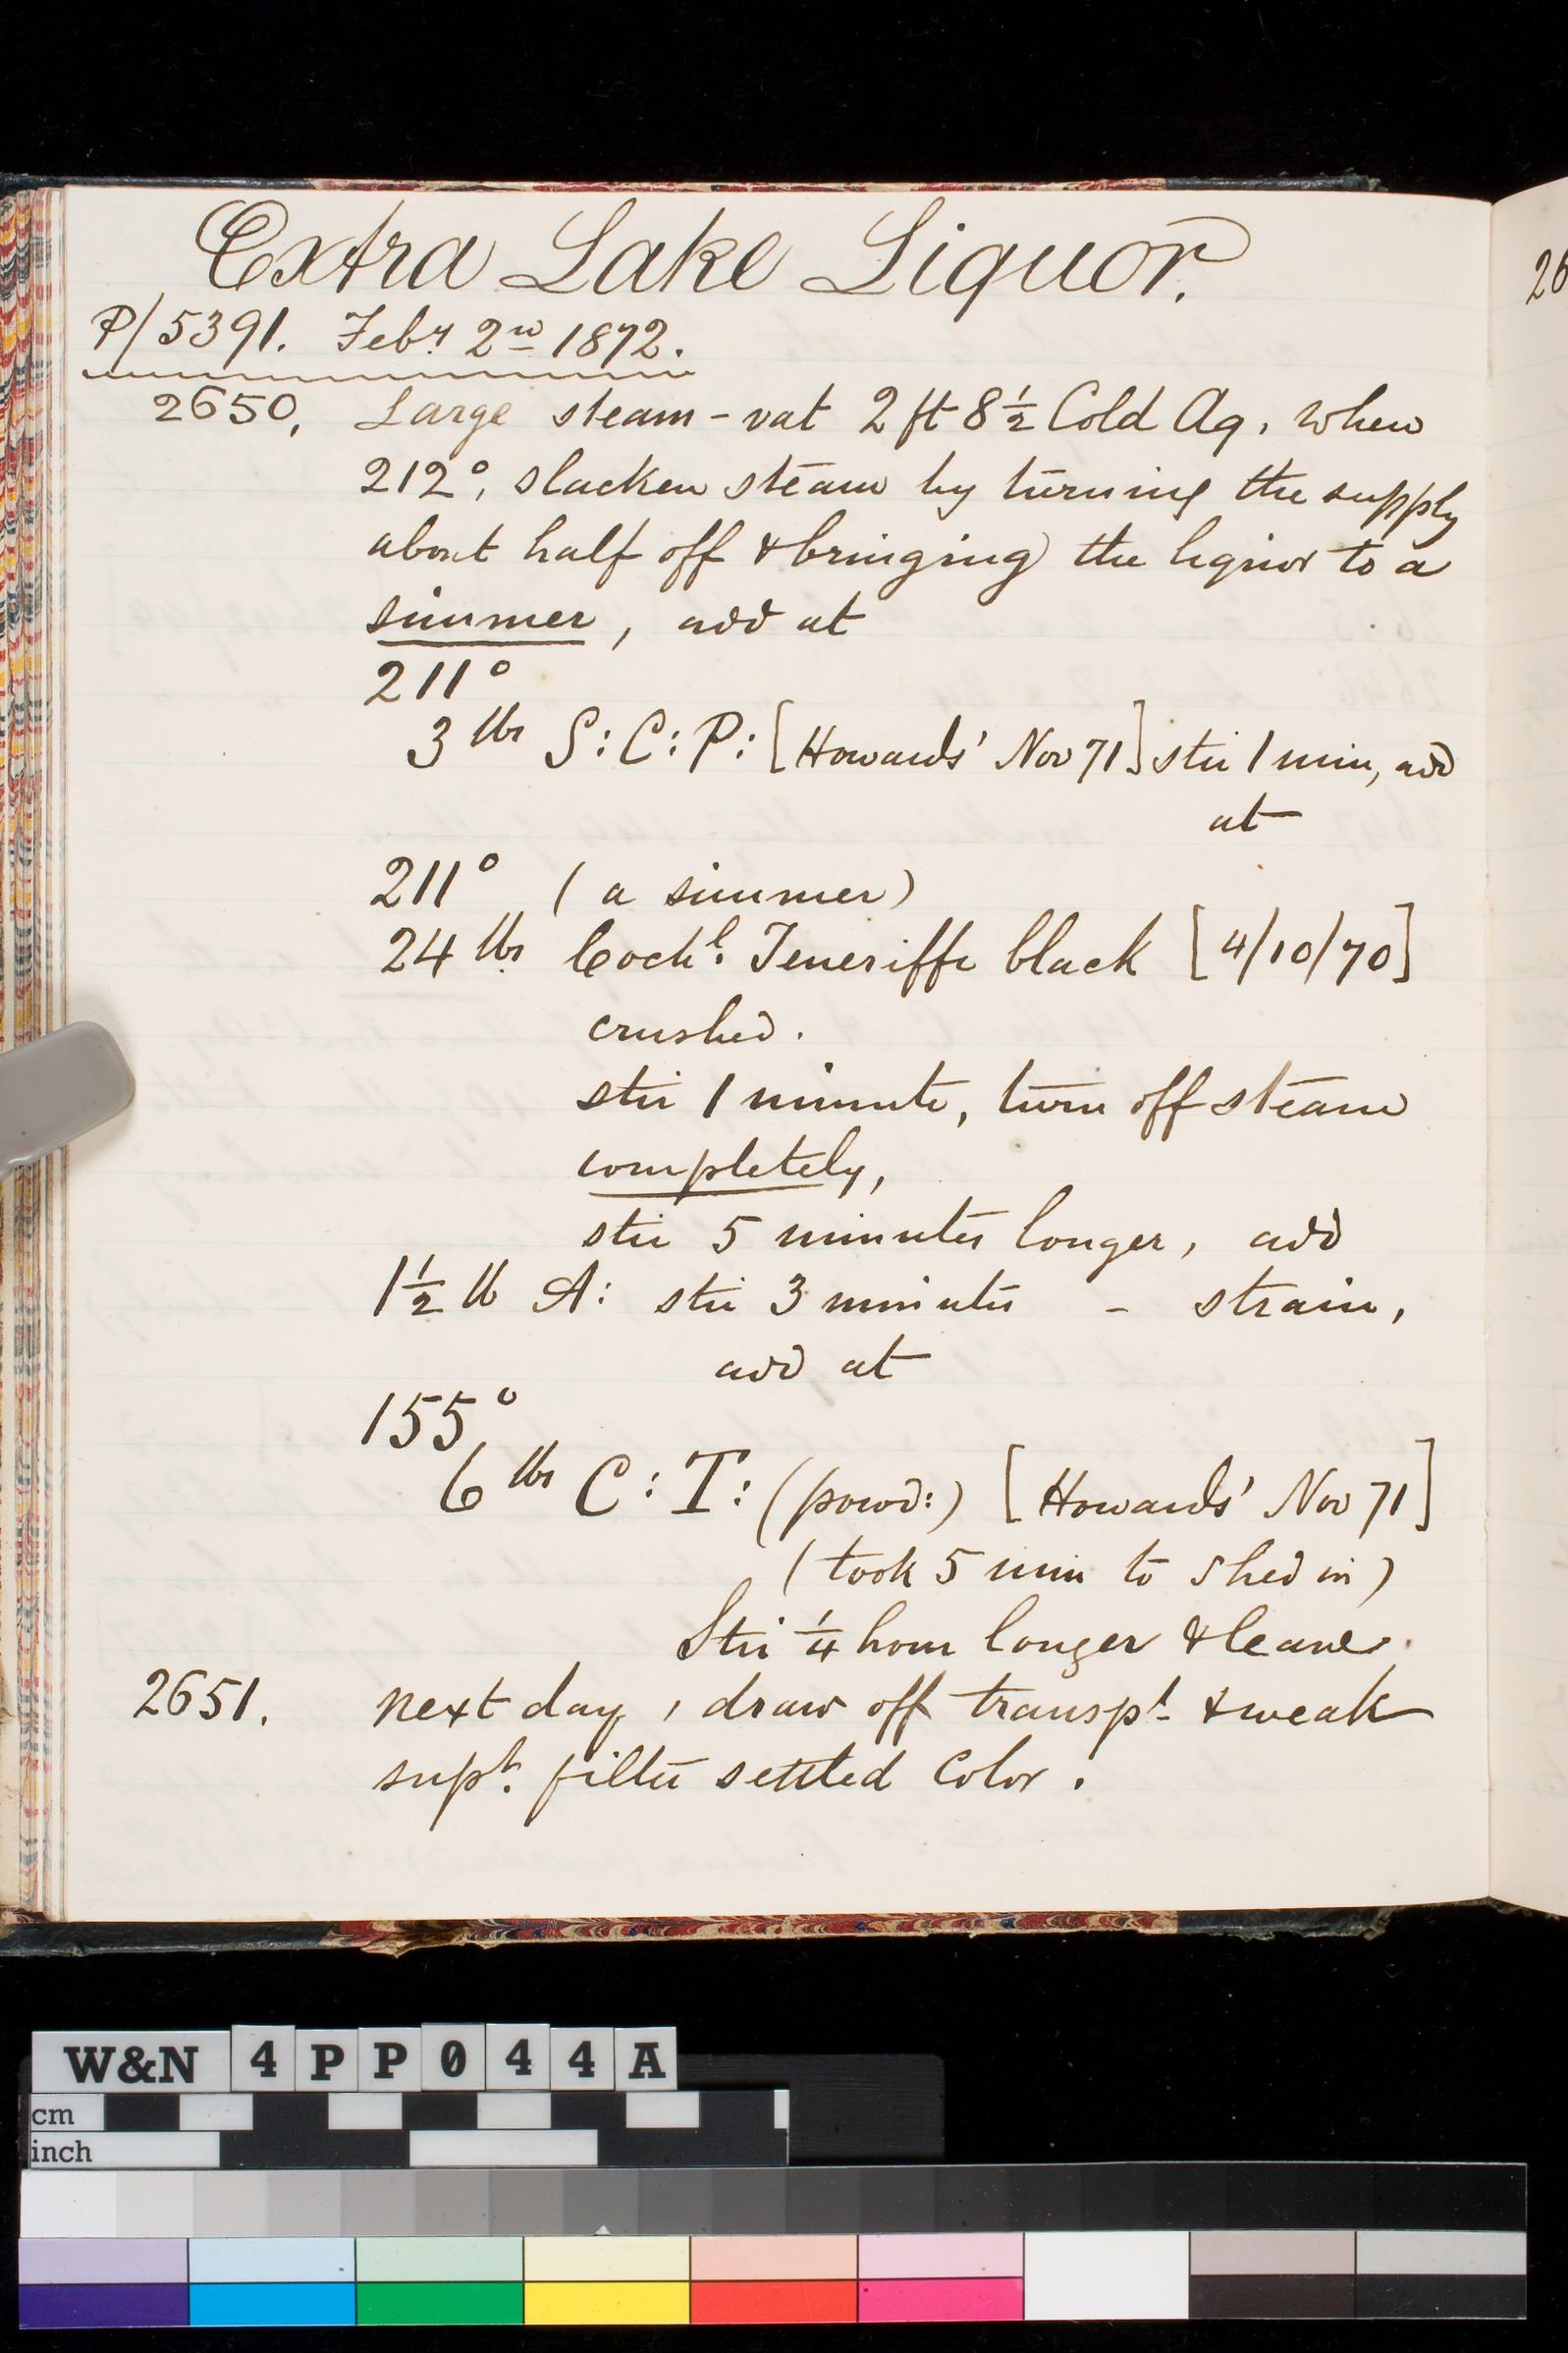 Extra Lake Liquor.
P/5391. Feby 2nd 1872.
2650, Large steam-vat 2 ft 8 1/2 Cold Aq, when
212°, slacken steam by turning the supply
about half off & bringing the liquor to a
simmer, add at
211°
3 lbs S:C:P: [Howards' Nov 71] stir 1 min, add
at
211° (a simmer)
24 lbs Cochl. Teneriffe black [4/10/70]
crushed.
stir 1 minute, turn off steam
completely,
stir 5 minutes longer, add
1 1/2 lb A: stir 3 minutes - strain,
add at
155°
6 lbs C:T: (powd:) [Howards' Nov 71]
(took 5 min to shed in)
Stir 1/4 hour longer & leave.
2651. next day, draw off transpt & weak
supt. filter settled Color.
26
W&N 4PP044A
cm
inch